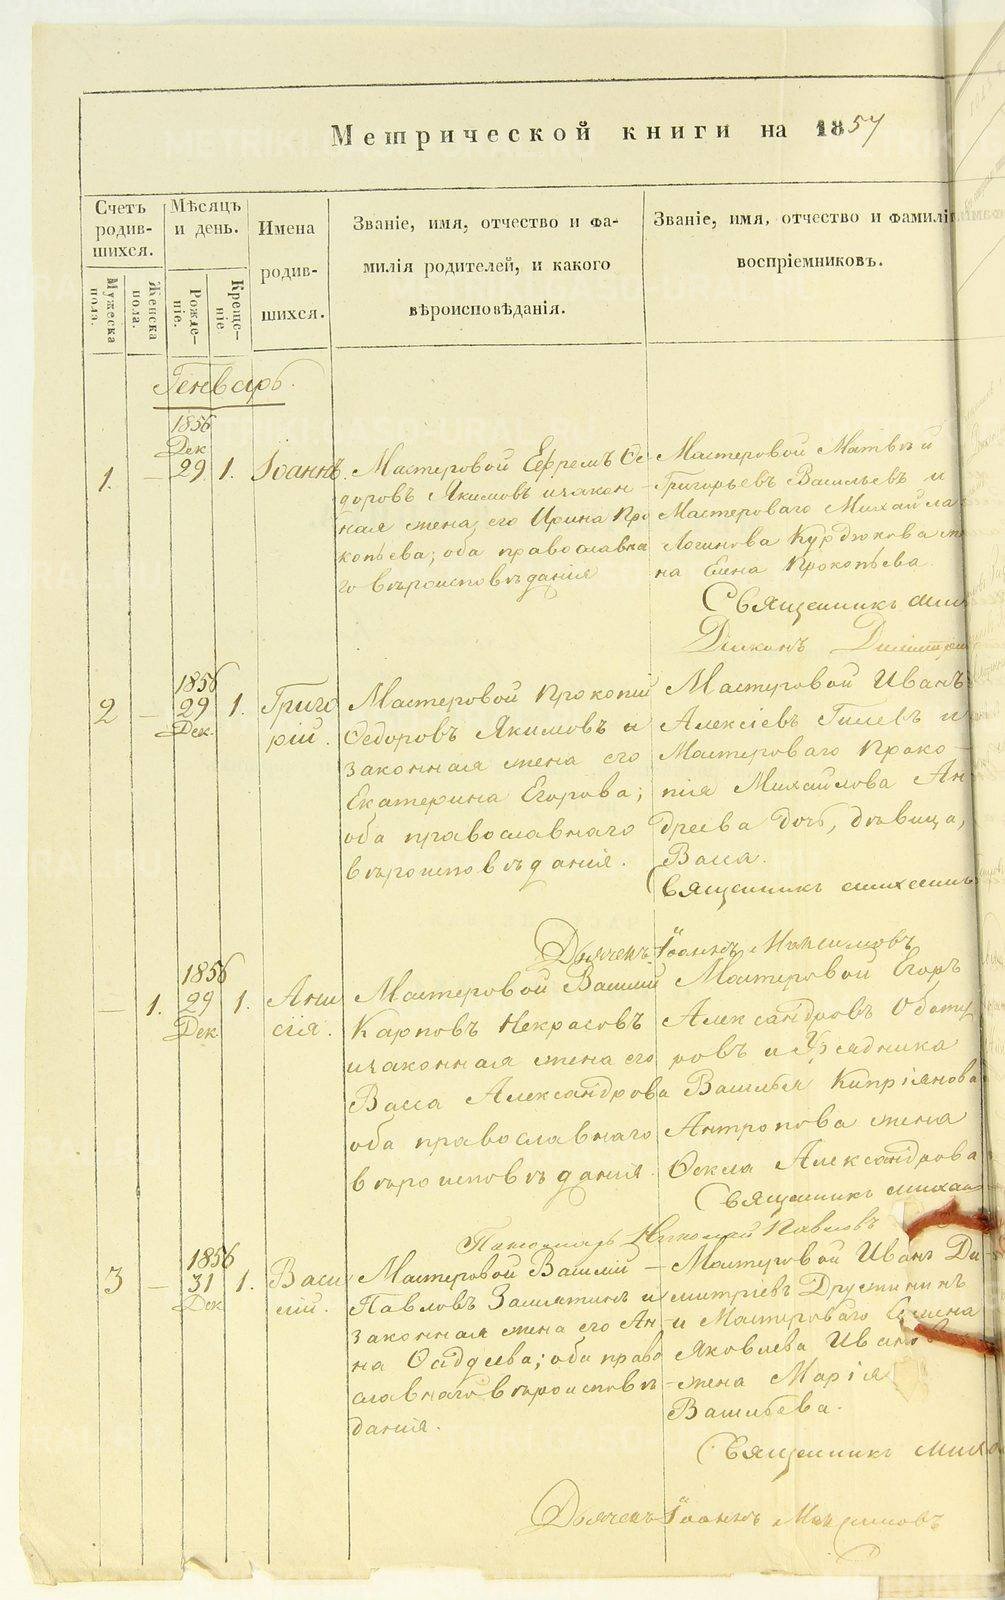 Метрической книги на 1857
Счетъ родив-шихся.
Мѣсяцъ и день.
Имена родив-шихся.
Званіе, имя, отчество и фа-
милія родителей, и какого
вѣроисповѣданія.
Званіе, имя, отчество и фамилія
воспріемниковъ.
Мужеска пола.
Женска пола.
Рожде-ніе.
Креще-ніе.
Генварь.
1856
Дек
1. — 29 1. Іоаннъ.
Мастеровой Ефремъ Ѳе
доровъ Якимовъ и закон-
ная жена его Ирина Про
копьева; оба православна
го вѣроисповѣданія
Мастеровой Матвѣй
Григорьевъ Васильевъ и
Мастероваго Михайла
Логинова Курдюкова же
на Елена Прокопьева.
Священникъ Мих
Діаконъ Димитрій
1856
2 — 29 1. Григо
Дек. рій.
Мастеровой Прокопій
Ѳедоровъ Якимовъ и
законная жена его
Екатерина Егорова;
оба православнаго
вѣроисповѣданія.
Мастеровой Иванъ
Алексіевъ и
Мастероваго Проко-
пія Михайлова Ан
дреева дочь, дѣвица,
Васса.
Священникъ Михаилъ
Дьячекъ Іоаннъ Максимовъ
1856
— 1. 29 1. Ани
Дек. сія.
Мастеровой Василій
Карповъ Некрасовъ
и законная жена его
Васса Александрова
оба православнаго
вѣроисповѣданія
Мастеровой Егоръ
Александровъ
ровъ и Урядника
Василья Кипріянова
Антропова жена
Ѳекла Александрова
Священникъ Михаи
Пономарь Николай Павловъ
1856
3 — 31 1. Васи
Дек лій.
Мастеровой Василій —
Павловъ Замятинъ и
законная жена его Ан-
на Ѳаддеева; оба право
славнаго вѣроисповѣ-
данія.
Мастеровой Иванъ Ди
митріевъ Дружининъ
и Мастероваго Семена
Яковлева Иванов
жена Марія
Васильева.
Священникъ Миха
Дьячекъ Іоаннъ Максимовъ